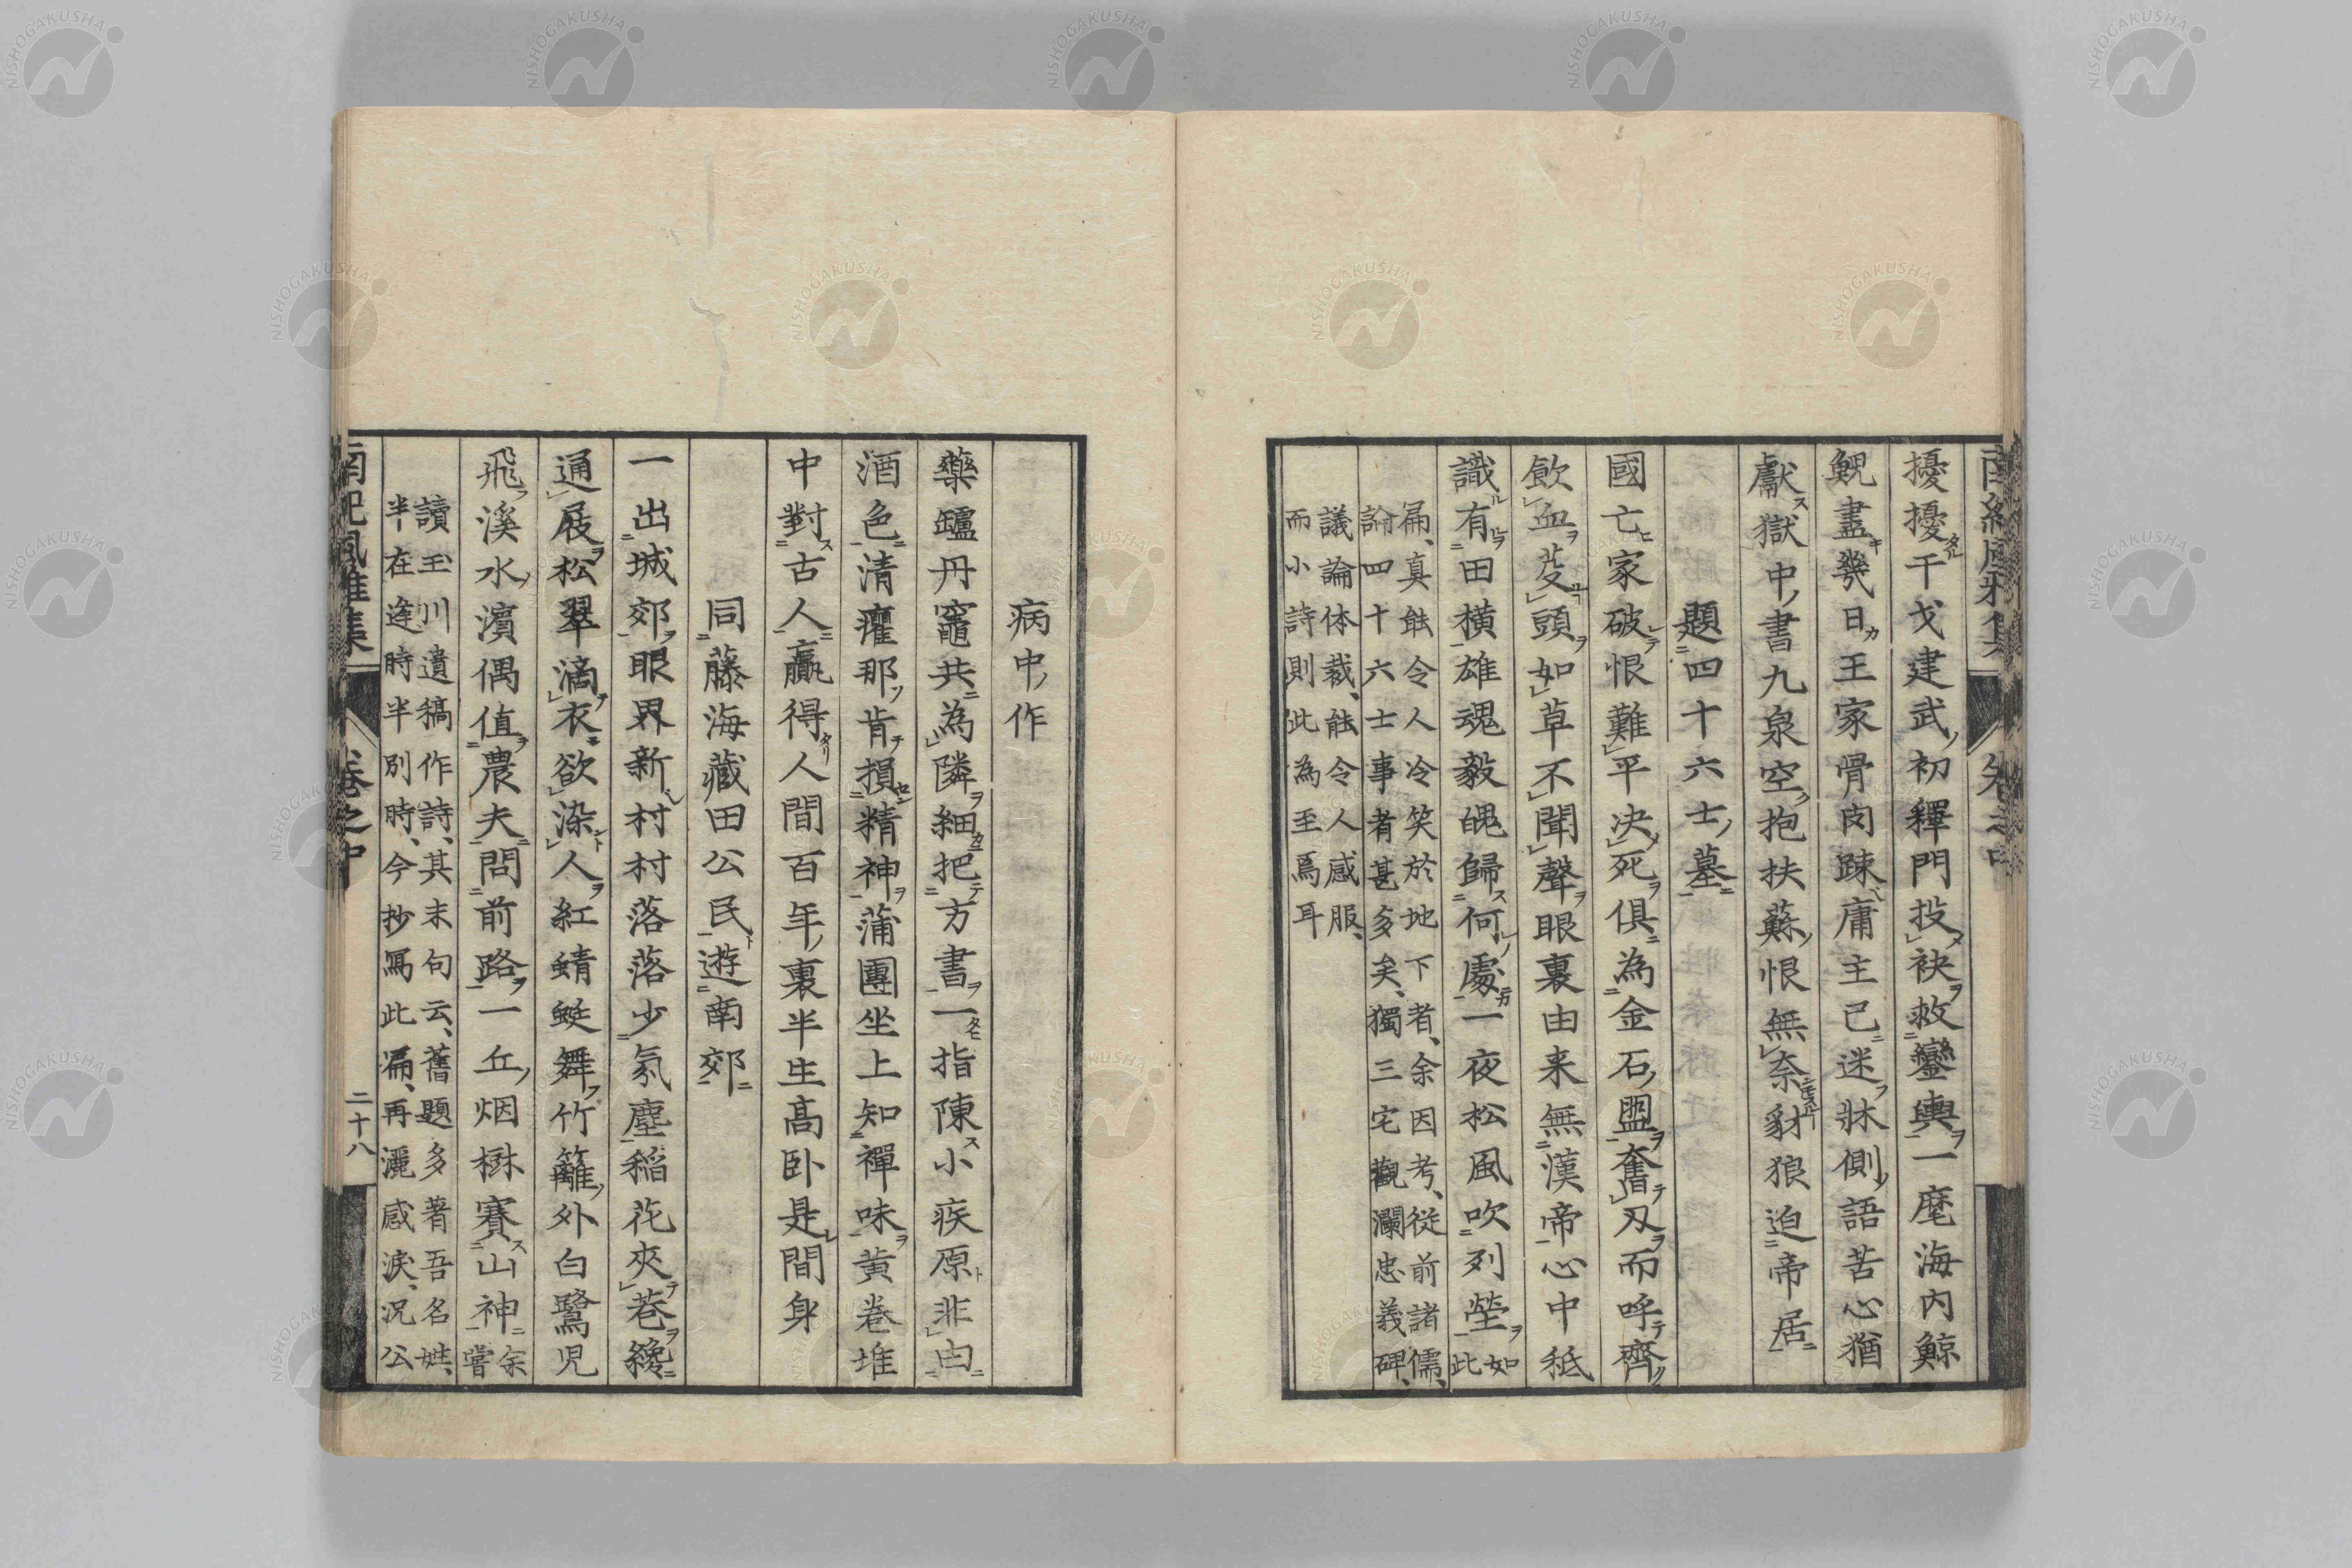 擾擾干戈建武初釋門投袂救鑾輿一麾海內鯨
鯢盡幾日王家骨肉疎庸主已迷牀側語苦心猶
獻獄中書九泉空抱扶蘇恨無奈豺狼迫帝居
題四十六士墓
國亡家破恨難平決死俱為金石盟奮刃而呼齊
飲血芟頭如草不聞聲眼裏由来無漢帝心中秪
識有田橫雄魂毅魄歸何處一夜松風吹列塋
如
此
扁、真能令人冷笑於地下者、余因考、從前諸儒、
論四十六士事者甚多矣、獨三宅觀瀾忠義碑、
議論体裁、能令人感服、
而小詩則此為至焉耳
病中作
藥罏丹竈共為隣細把方書一指陳小疾原非由
酒色清癯那肯損精神蒲團坐上知禪味黄卷堆
中對古人贏得人間百年裏半生高卧是間身
同藤海藏田公民遊南郊
一出城郊眼界新村村落落少氛塵稲花夾巷纔
通屐松翠滴衣欲染人紅蜻蜓舞竹籬外白鷺児
飛溪水濱偶值農夫問前路一丘烟樹賽山神
余
嘗
讀玉川遺稿作詩、其末句云、舊題多著吾名姓、
半在逢時半別時、今抄寫此扁、再灑感淚、況公
南紀風雅集
卷之中
二十八